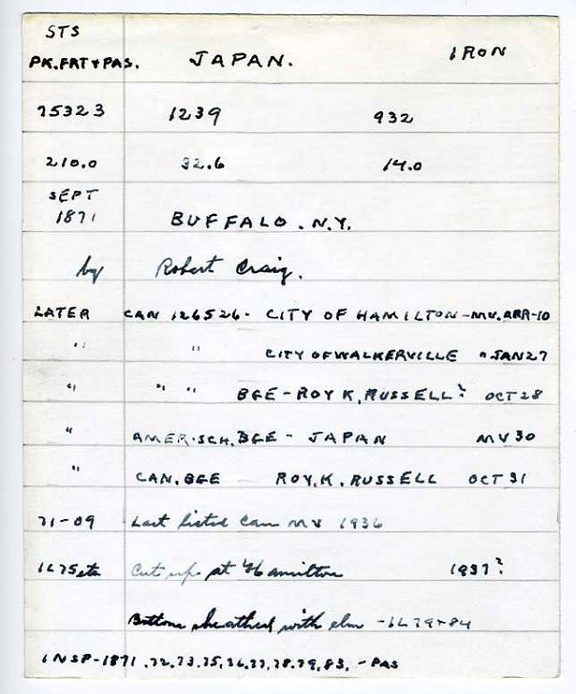 STS
PK.FRT+PAS. JAPAN. IRON
75323 1239 932
210.0 32.6 14.0
SEPT
1871 BUFFALO. N.Y.
by Robert Craig.
LATER CAN 126526- CITY OF HAMILTON-MV.APR-10
" " CITY OF WALKERVILLE " JAN27
" " " BGE-ROY K, RUSSELL? OCT28
" AMER.SCH.BGE - JAPAN MV30
" CAN.BGE ROY.K.RUSSELL OCT 31
71-09 Last listed Can MV 1936
IL75sta Cut up at Hamilton 1937?
Bottom sheathed with elm -IL79+84
INSP-1871.72.73.75.76.77.78.79.83.-PAS